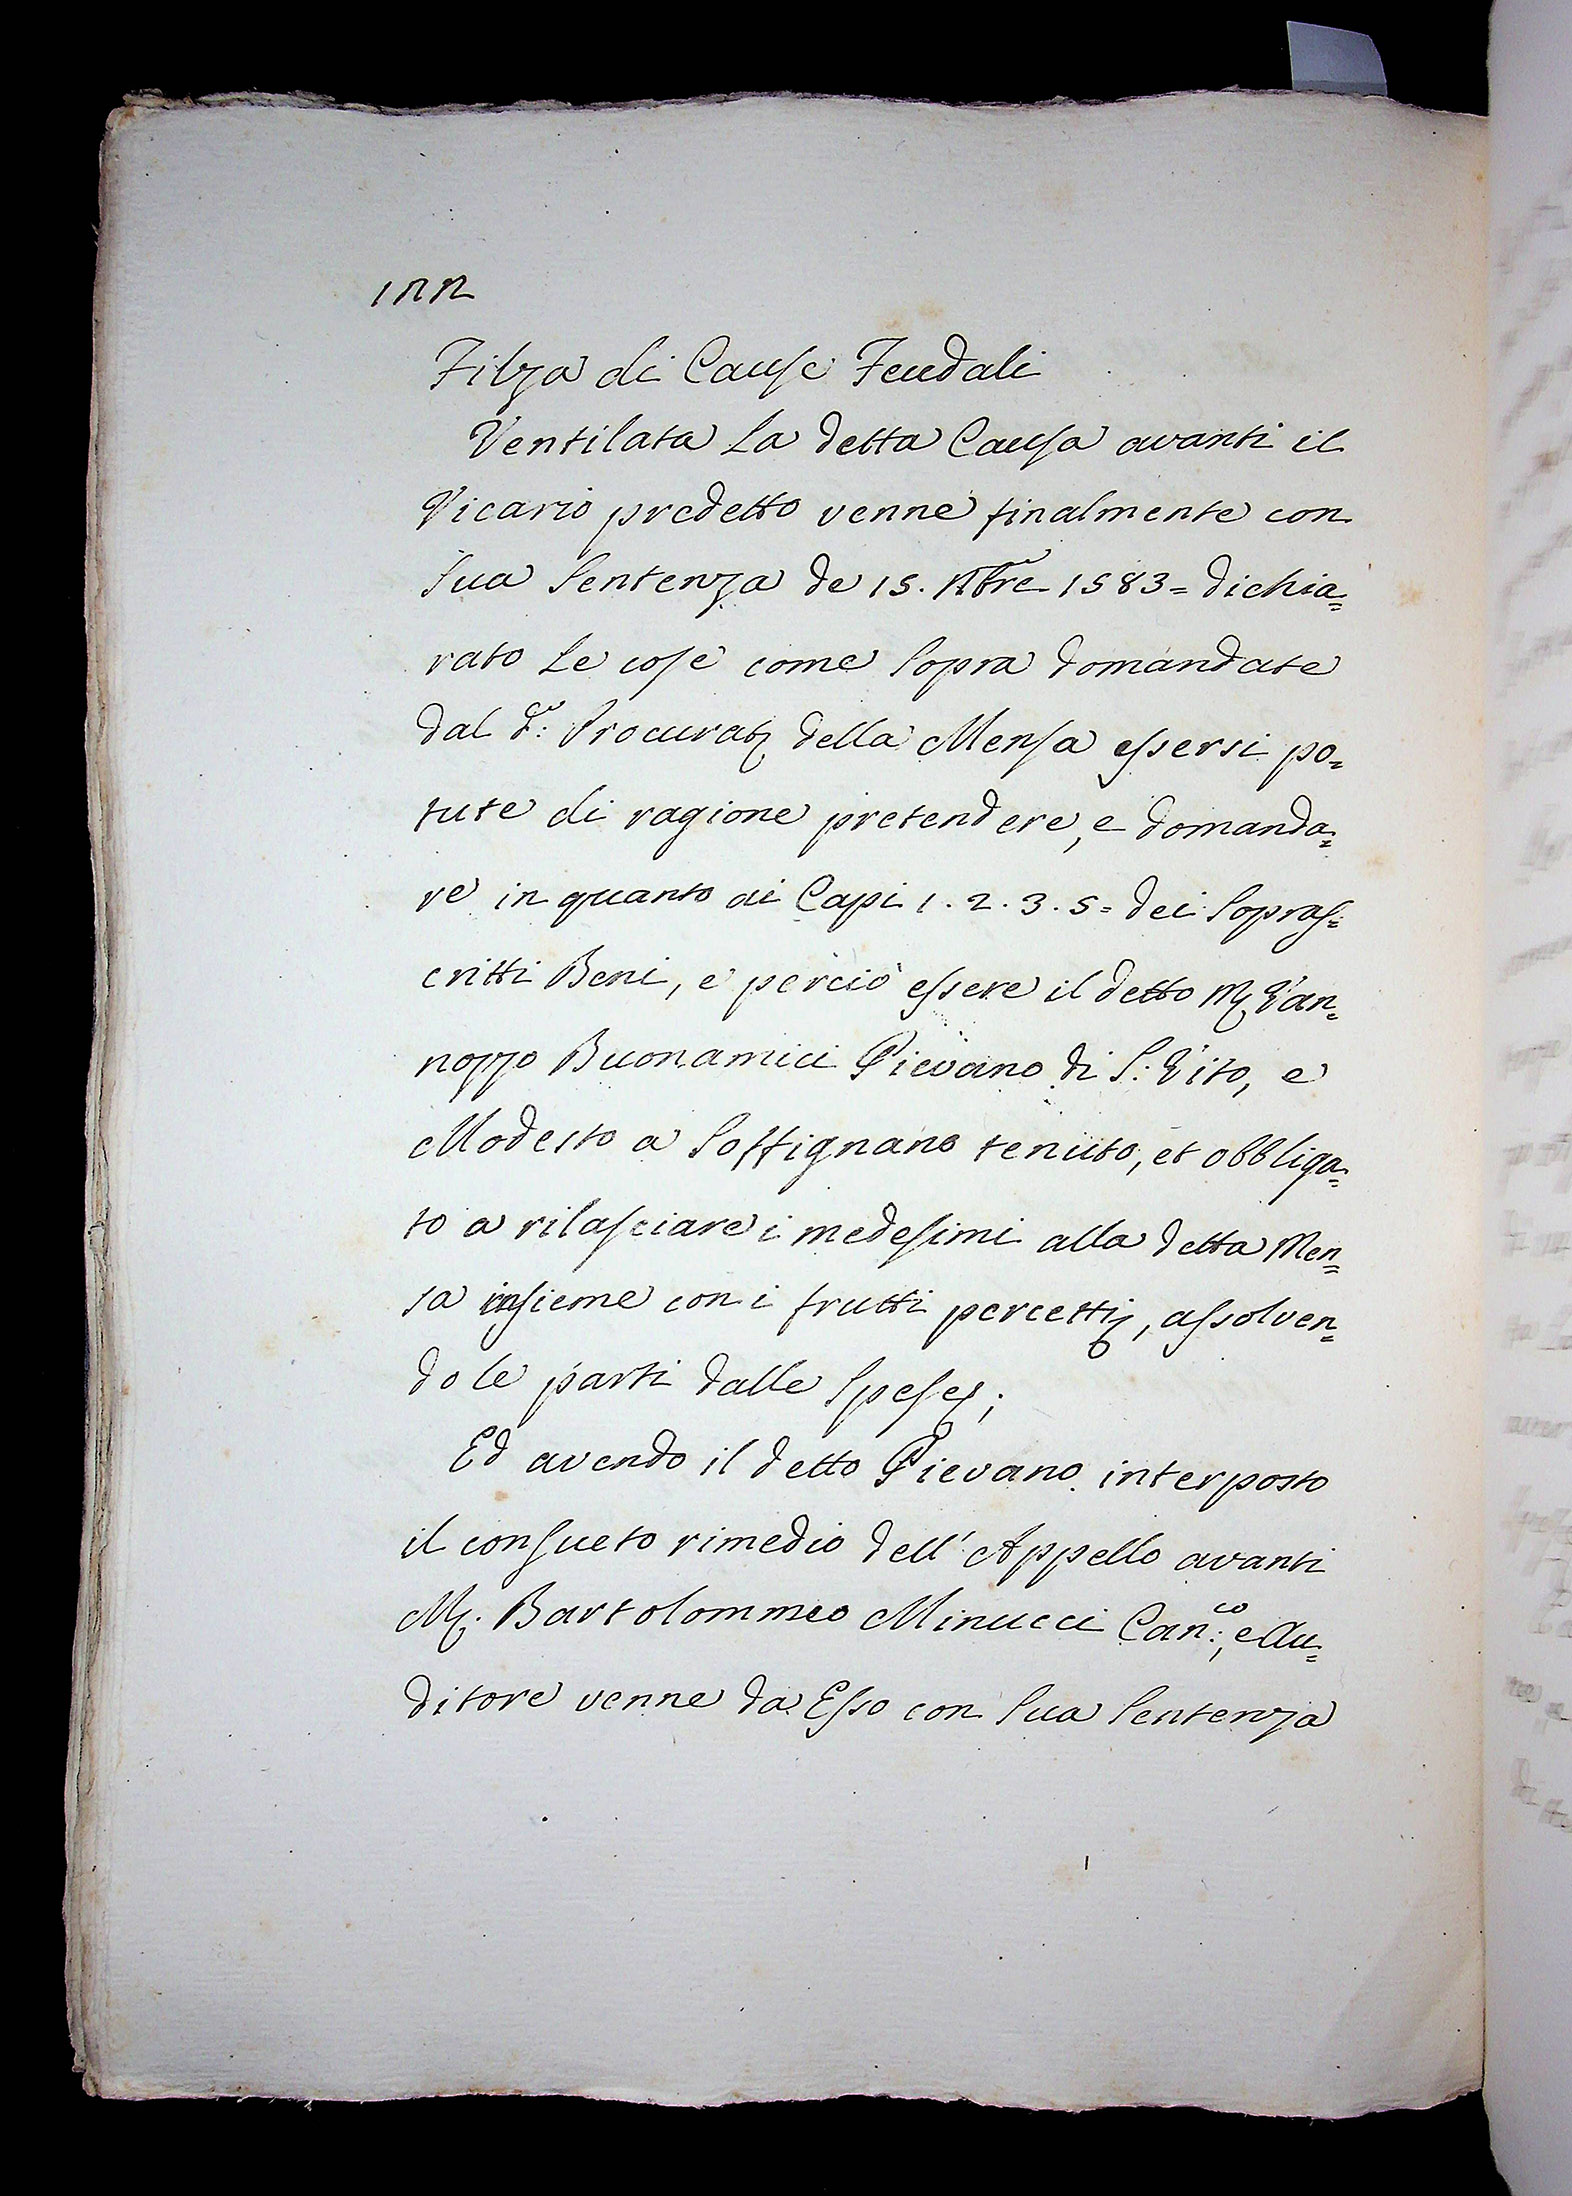 122
Filza di Cause Feudali
Ventilata La detta Causa avanti il
Vicario predetto venne finalmente con
Sua Sentenza de 15. Nbre 1583= dichia=
rato Le cose come Sopra domandate
dal do: Procurat della Mensa essersi po=
tute di ragione pretendere, e domanda=
re in quanto ai Capi 1. 2. 3. 5= dei Sopras=
critti Beni, e perciò essere il detto M Van=
nozzo Buonamici Pievano di S: Vito, e
Modesto a Soffignano tenuto, et obbliga=
to a rilasciare i medesimi alla detta Men=
sa insieme con i frutti percetti, assolven=
do le parti dalle Spese;
Ed avendo il detto Pievano interposto
il consueto rimedio dell' Appello avanti
M. Bartolommeo Minucci Can:co, e Au=
ditore venne da Esso con Sua Sentenza